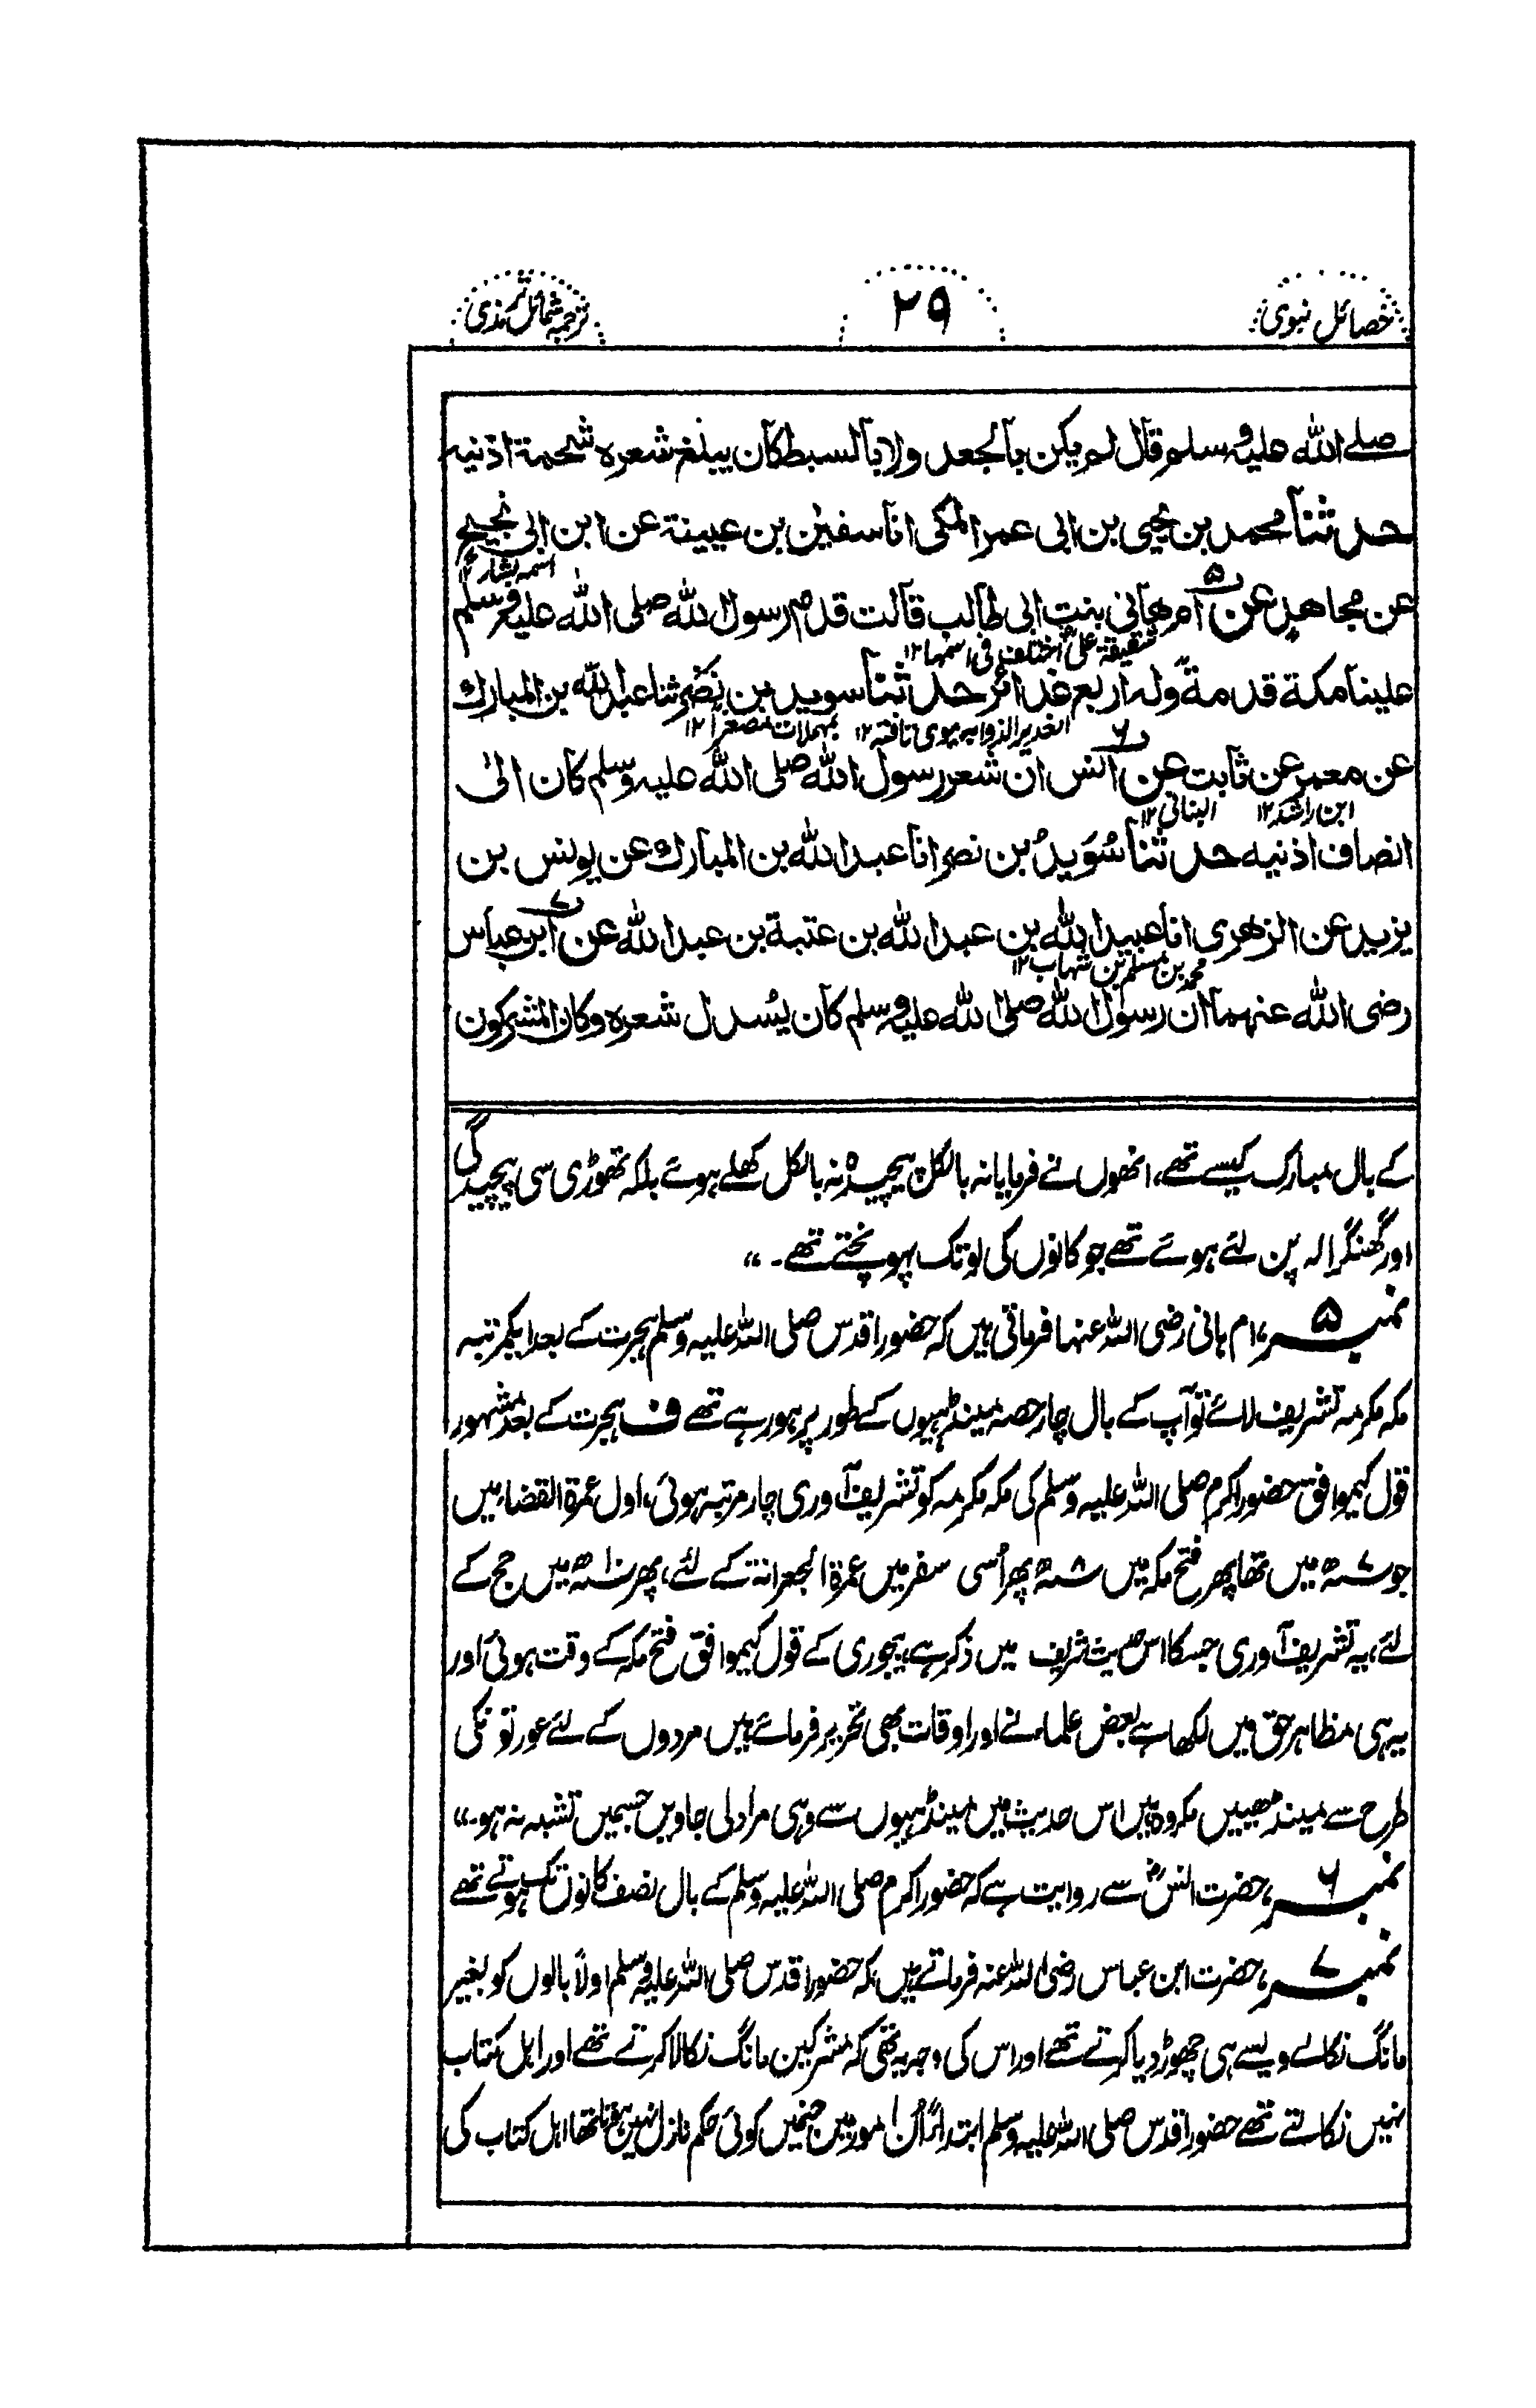 خصائل نبوی
۲۹
ترجمہ شمائل ترمذی
صلے اللہ علیہ وسلم قال لم یکن بالجعد ولا بالسبط کان یبلغ شعرہ شحمة اذنیہ
حدثنا محمد بن یحیی بن ابی عمر المکی انا سفین بن عیینة عن ابن ابی نجیح
اسمہ یسار ۱۲
۵
عن مجاھد عن ام ھانی بنت ابی طالب قالت قدم رسول اللہ صلی اللہ علیہ وسلم
شقیقة علیؓ اختلف فی اسمہا ۱۲
علینا مکة قدمةً ولہ اربع غدائر حدثنا سوید بن نصر ثنا عبد اللہ بن المبارک
الغدیر الذوابہ موی تافتہ ۱۲ بمہملات مصغراً ۱۲
۶
عن معمر عن ثابت عن انس ان شعر رسول اللہ صلی اللہ علیہ وسلم کان الیٰ
ابن راشد ۱۲ البنانی ۱۲
انصاف اذنیہ حدثنا سُوَیدُ بن نصر انا عبد اللہ بن المبارک عن یونس بن
۷
یزید عن الزھری انا عبید اللہ بن عبد اللہ بن عتبة بن عبد اللہ عن ابن عباس
محمد بن مسلم بن شہاب ۱۲
رضی اللہ عنہما ان رسول اللہ صلی اللہ علیہ وسلم کان یُسدل شعرہ وکان المشرکون
کے بال مبارک کیسے تھے، انھوں نے فرمایا نہ بالکل پیچیدہ نہ بالکل کھلے ہوئے بلکہ تھوڑی سی پیچیدگی
اور گھنگرالہ پن لئے ہوئے تھے جو کانوں کی لو تک پہونچتے تھے۔ ،،
نمبر ۵، ام ہانی رضی اللہ عنہا فرماتی ہیں کہ حضور اقدس صلی اللہ علیہ وسلم ہجرت کے بعد ایکمرتبہ
مکہ مکرمہ تشریف لائے تو آپ کے بال چار حصہ مینڈہیوں کے طور پر ہو رہے تھے ف ہجرت کے بعد مشہور
قول کیموافق حضور اکرم صلی اللہ علیہ وسلم کی مکہ مکرمہ کو تشریف آوری چار مرتبہ ہوئی، اول عمرۃ القضاء میں
جو ۷ھ میں تھا پھر فتح مکہ میں ۸ھ پھر اُسی سفر میں عمرۃ الجعرانۃ کے لئے، پھر ۱۰ھ میں حج کے
لئے، یہ تشریف آوری جسکا اس حدیث شریف میں ذکر ہے، بیجوری کے قول کیموافق فتح مکہ کے وقت ہوئی اور
یہ ہی مظاہر حق میں لکھا ہے بعض علماء نے اور اوقات بھی تحریر فرمائے ہیں مردوں کے لئے عورتونکی
طرح سے مینڈھییں مکروہ ہیں اس حدیث میں مینڈہیوں سے وہی مراد لی جاویں جسمیں تشبہ نہ ہو۔،،
نمبر ۶، حضرت انسؓ سے روایت ہے کہ حضور اکرم صلی اللہ علیہ وسلم کے بال نصف کانوں تک ہوتے تھے
نمبر ۷، حضرت ابن عباس رضی اللہ عنہ فرماتے ہیں، کہ حضور اقدس صلی اللہ علیہ وسلم اولاً بالوں کو بغیر
مانگ نکالے ویسے ہی چھوڑ دیا کرتے تھے اور اس کی وجہ یہ تھی کہ مشرکین مانگ نکالا کرتے تھے اور اہل کتاب
نہیں نکالتے تھے حضور اقدس صلی اللہ علیہ وسلم ابتداءً اُن امور میں جنمیں کوئی حکم نازل نہیں ہوتا تھا اہل کتاب کی